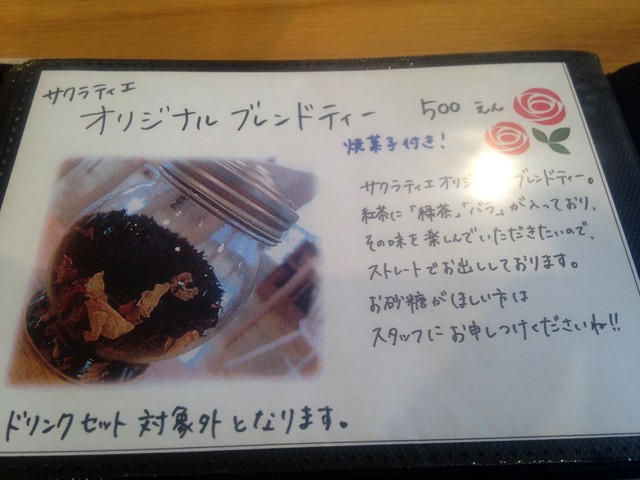 サクラティエ
オリジナル ブレンドティー 500 えん
焼菓子付き!
サクラティエ オリジナル ブレンドティー。
紅茶に「緑茶」「バラ」が入っており、
その味を楽しんでいただきたいので、
ストレートでお出ししております。
お砂糖がほしい方は
スタッフにお申しつけくださいね!!
ドリンクセット 対象外となります。